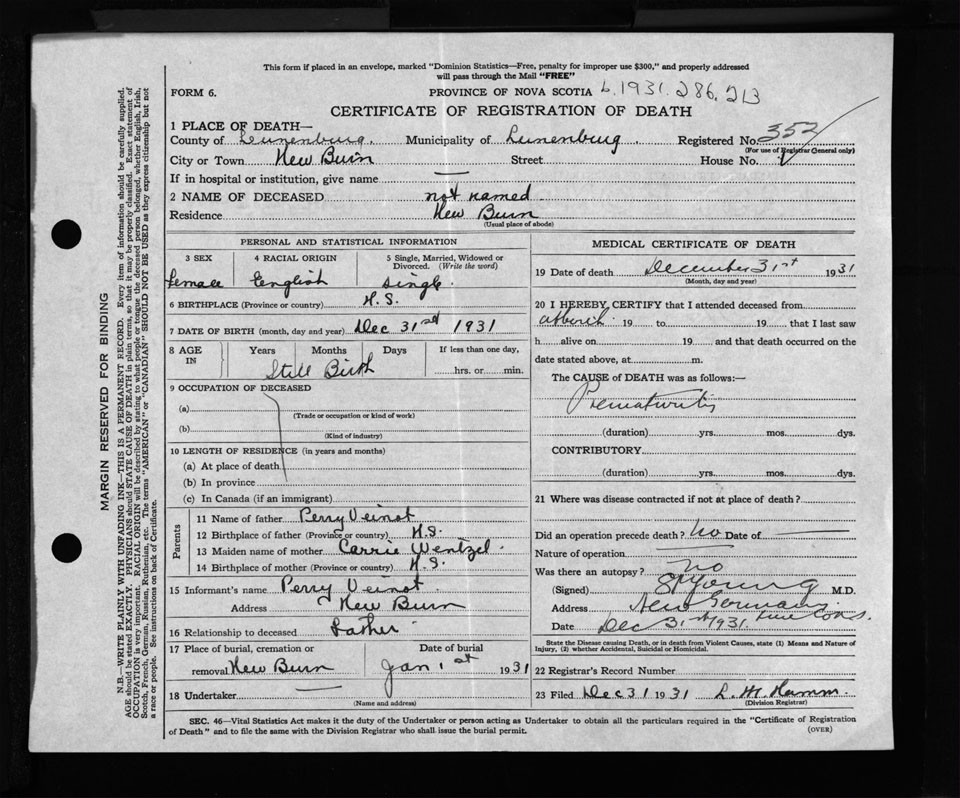 This form if placed in an envelope, marked "Dominion Statistics—Free, penalty for improper use $300," and properly addressed
will pass through the Mail "FREE"
FORM 6.
PROVINCE OF NOVA SCOTIA 1931.286.213
CERTIFICATE OF REGISTRATION OF DEATH
1 PLACE OF DEATH—
County of Lunenburg. Municipality of Lunenburg. Registered No. 352
(For use of Registrar General only)
City or Town New Burn Street House No.
If in hospital or institution, give name —
2 NAME OF DECEASED not named
Residence New Burn
(Usual place of abode)
PERSONAL AND STATISTICAL INFORMATION
3 SEX 4 RACIAL ORIGIN 5 Single, Married, Widowed or Divorced. (Write the word)
Female English Single.
6 BIRTHPLACE (Province or country) N.S.
7 DATE OF BIRTH (month, day and year) Dec 31st 1931
8 AGE IN Years Months Days If less than one day,
Still Birth hrs. or min.
9 OCCUPATION OF DECEASED
(a)
(Trade or occupation or kind of work)
(b)
(Kind of industry)
10 LENGTH OF RESIDENCE (in years and months)
(a) At place of death
(b) In province
(c) In Canada (if an immigrant)
Parents
11 Name of father Perry Veinot
12 Birthplace of father (Province or country) N.S.
13 Maiden name of mother Carrie Wentzel.
14 Birthplace of mother (Province or country) N.S.
15 Informant's name Perry Veinot
Address New Burn
16 Relationship to deceased Father
17 Place of burial, cremation or Date of burial
removal New Burn Jan 1st 1931
18 Undertaker —
(Name and address)
MEDICAL CERTIFICATE OF DEATH
19 Date of death December 31st 1931
(Month, day and year)
20 I HEREBY CERTIFY that I attended deceased from
at birth 19 to 19 that I last saw
h alive on 19 and that death occurred on the
date stated above, at m.
The CAUSE of DEATH was as follows:—
Prematurity
(duration) yrs. mos. dys.
CONTRIBUTORY
(duration) yrs. mos. dys.
21 Where was disease contracted if not at place of death?
Did an operation precede death? No Date of —
Nature of operation —
Was there an autopsy? no
(Signed) Young M.D.
Address New Germany
Date Dec 31st 1931. Lun Co N.S.
State the Disease causing Death, or in death from Violent Causes, state (1) Means and Nature of
Injury, (2) whether Accidental, Suicidal or Homicidal.
22 Registrar's Record Number
23 Filed Dec 31 1931 L. M. Hamm.
(Division Registrar)
SEC. 46—Vital Statistics Act makes it the duty of the Undertaker or person acting as Undertaker to obtain all the particulars required in the "Certificate of Registration
of Death" and to file the same with the Division Registrar who shall issue the burial permit.
(OVER)
MARGIN RESERVED FOR BINDING
N.B.—WRITE PLAINLY WITH UNFADING INK—THIS IS A PERMANENT RECORD. Every item of information should be carefully supplied.
AGE should be stated EXACTLY. PHYSICIANS should STATE CAUSE OF DEATH in plain terms, so that it may be properly classified. Exact statement of
OCCUPATION is very important. RACIAL ORIGIN will be described by stating to what people or tongue the deceased person belonged, whether English, Irish,
Scotch, French, German, Russian, Ruthenian, etc. The terms "AMERICAN" or "CANADIAN" SHOULD NOT BE USED as they express citizenship but not
a race or people. See instructions on back of Certificate.